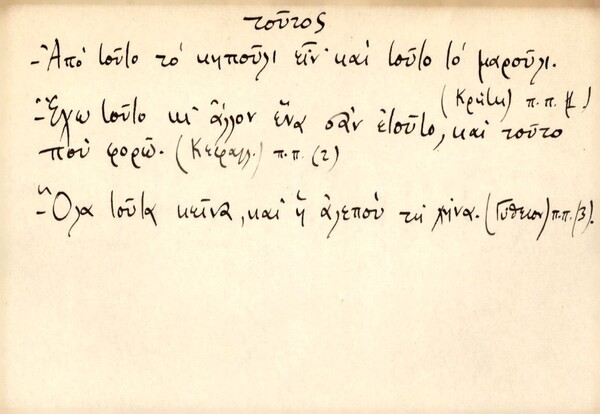 τοῦτος
-Ἀπὸ τοῦτο τὸ κηποῦλι εἶν' καὶ τοῦτο τὸ μαροῦλι.
(Κρήτη) π.π.
-Ἔχω τοῦτο κι ἄλλον ἕνα σὰν ἐτοῦτο, καὶ τοῦτο
ποὺ φορῶ. (Κεφαλλ.) π.π. (2)
-Ὅλα τοῦτα κεῖνα, καὶ ἡ ἀλεποὺ τὴ χήνα. (Γύθειον) π.π. (3).